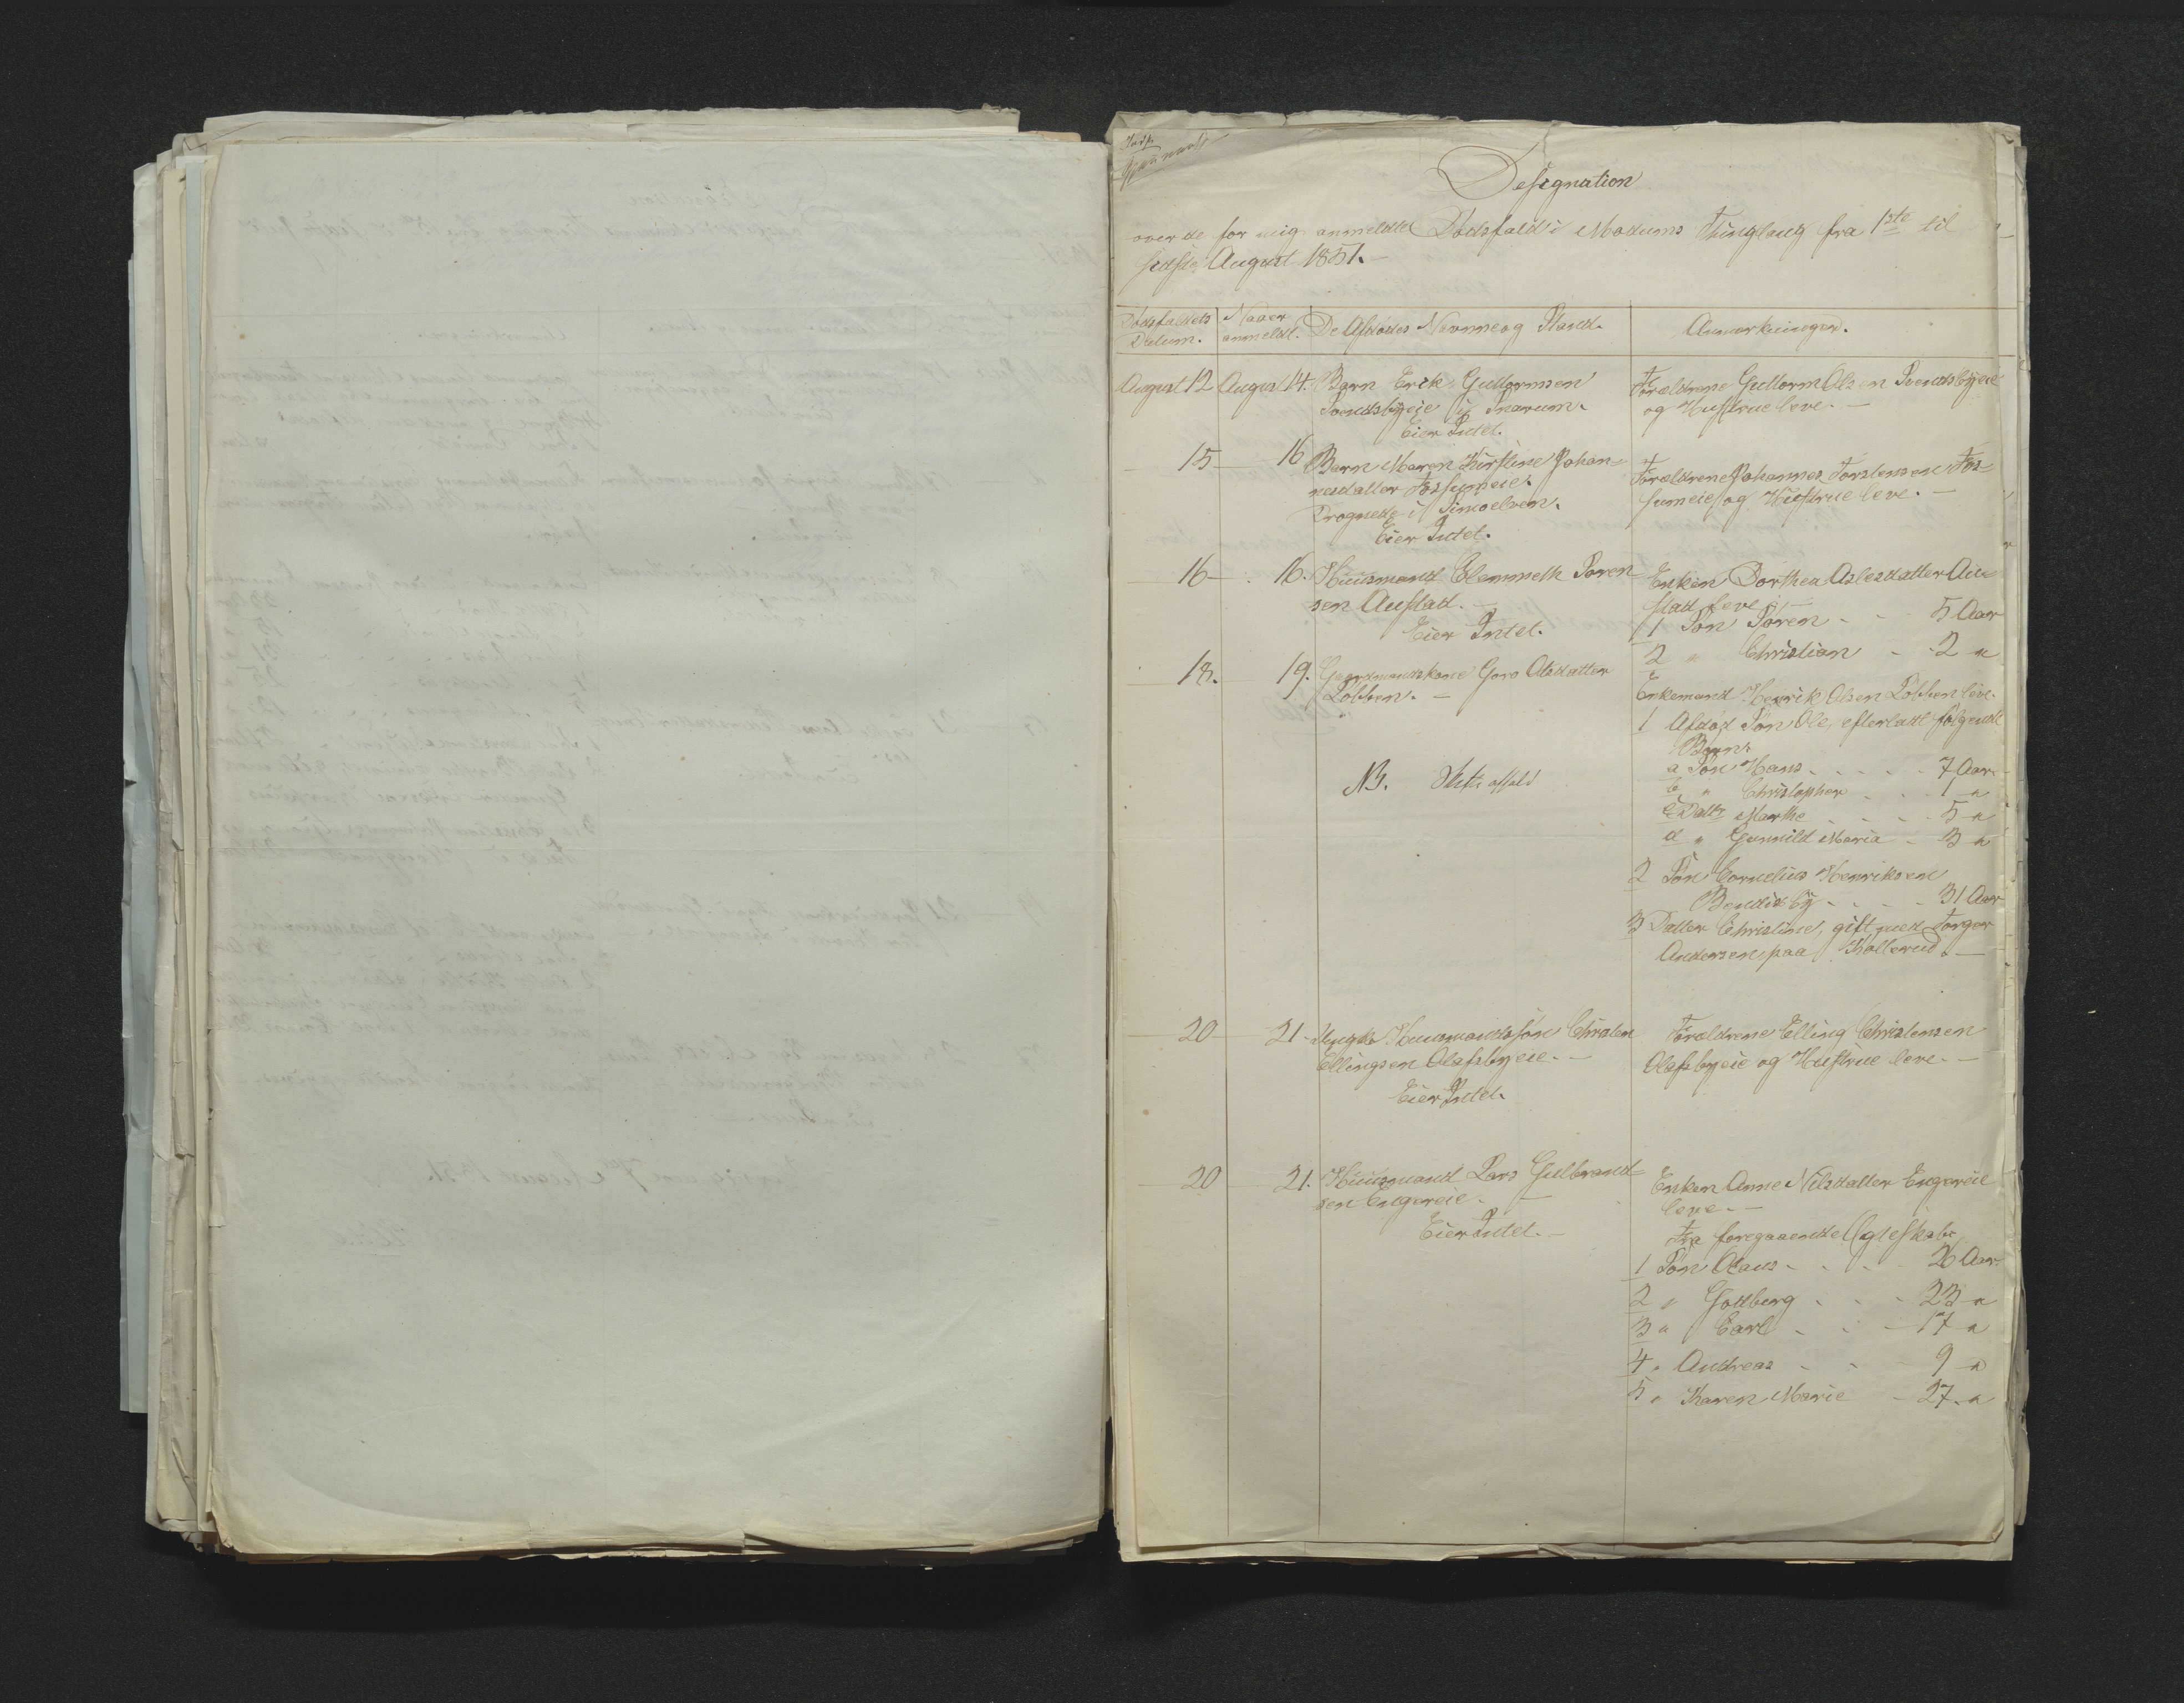 Designation
over de for mig anmeldte Dødsfald i Modums Thinglaug fra 1ste til
sidste August 1851.
Dødsfaldets Datum.
Naar anmeldt.
De Afdødes Navnne og Stand.
Anmærkninger.
August 12 August 14. Barn Erik Guttormsen
Svendsbyeie i Snarum.
Eier Intet.
Forældrene Guttorm Olsen Svendsbyeie
og Hustrue leve. —
15 — 16 Barn Maren Kirstine Johan-
nesdatter Fossumeie.
Drognede i Simoelven.
Eier Intet.
Forældrene Johannes Torstensen Fos-
sumeie og Hustrue leve. —
16 — 16. Huusmand Clemmeth Soren
sen Austad. —
Eier Intet.
Enken Dorthea Aslesdatter Au
stad leve. —
1 Søn Soren - - 5 Aar
2 " Christian - 2 "
18. 19. Gaardmandskone Goro Olsdatter
Løbben. —
NB. Skifte
Enkemand Henrik Olsen Løbben leve.
1 Afdød Søn Ole, efterladt følgende
Børn:
a Søn Hans - - - - 7 Aar
b " Christopher - - 1 "
c Datter Marthe - - - 5 "
d " Gunnild Maria - 3 "
2 Søn Cornelius Henriksen
Bendixby - - - - 31 Aar
3 Datter Christine, gift med Torger
Andersen paa Kollerud. —
20 — 21. Ungk. Huusmandssøn Christen
Ellingsen Olafsbyeie. —
Eier Intet.
Forældrene Elling Christensen
Olafsbyeie og Hustrue leve. —
20 — 21. Huusmand Lars Gulbrand-
sen Engereie. —
Eier Intet. —
Enken Anne Nilsdatter Engereie
leve. —
Fra foregaaende Ægteskab:
1 Søn Olaus - - - 26 Aar
2 " Gulberg - - - 23 "
3 " Carl - - - 17 "
4 " Andreas - - 9 "
5 " Karen Marie - 27 "